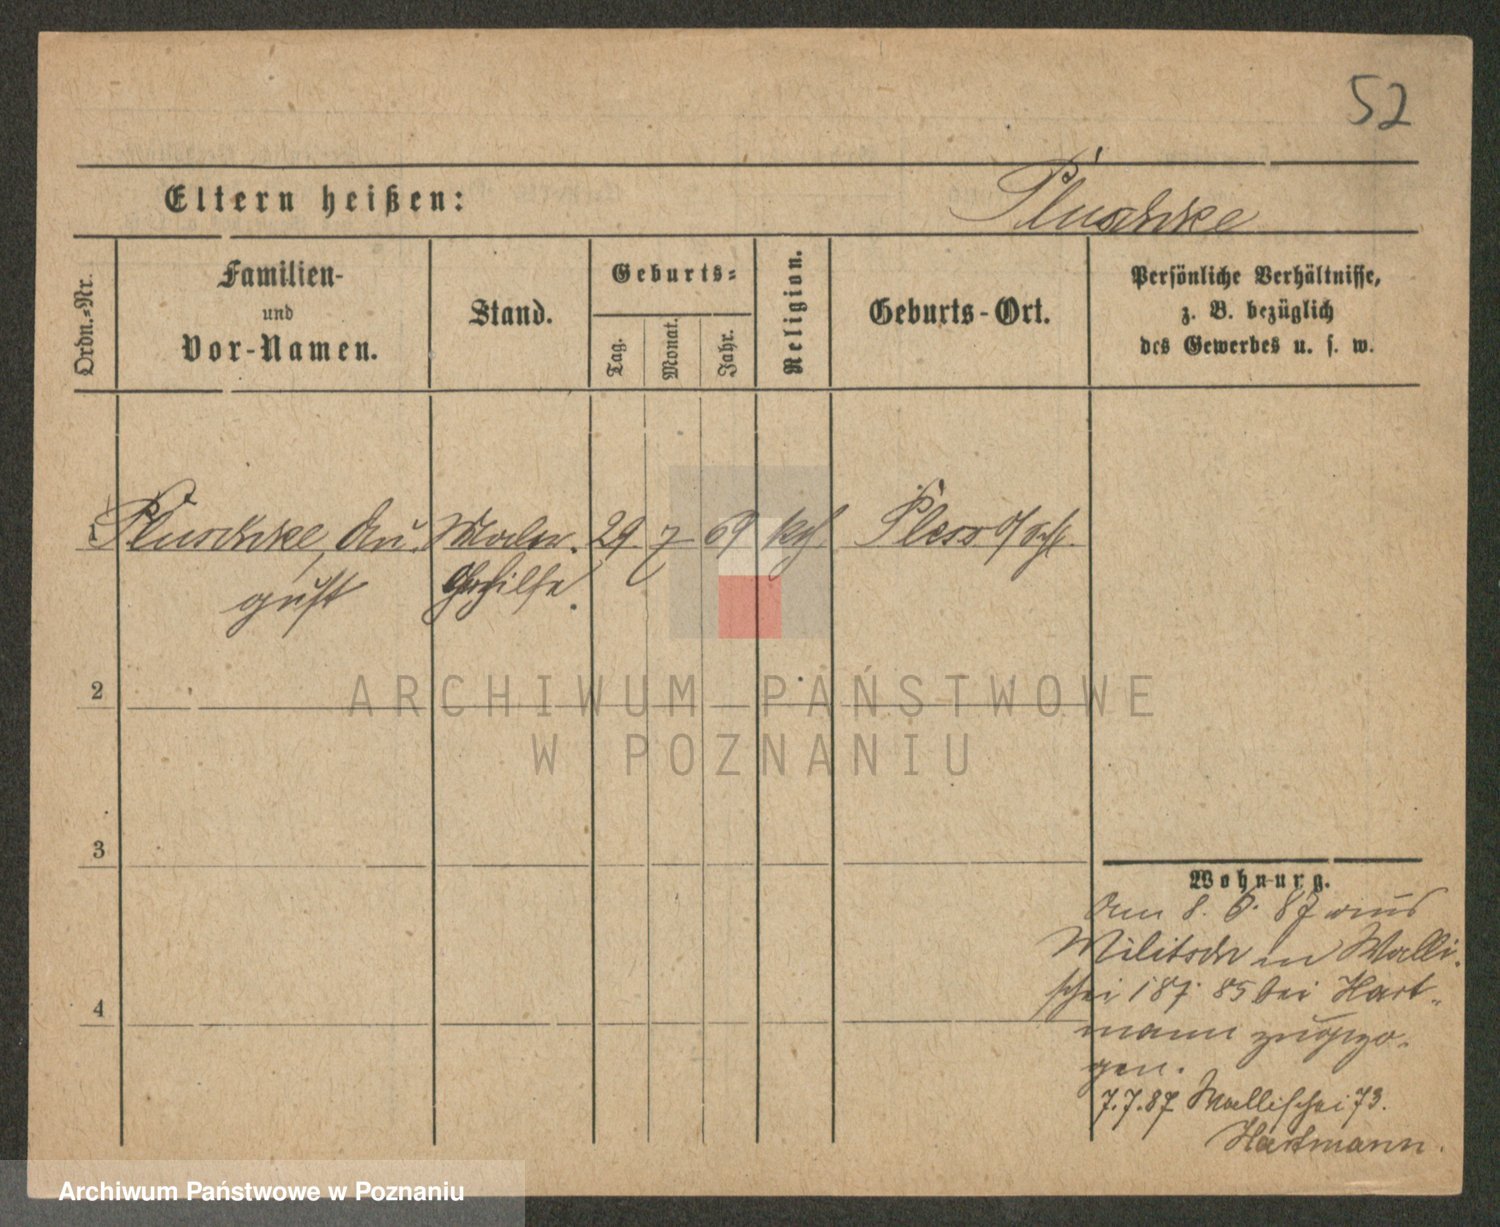 52
Eltern heißen:
Pluschke
Ordn.-Nr.
Familien-
und
Vor-Namen.
Stand.
Geburts-
Tag.
Monat.
Jahr.
Religion.
Geburts-Ort.
Persönliche Verhältnisse,
z. B. bezüglich
des Gewerbes u. s. w.
1 Pluschke, Au- Maler- 29 7 69 kth Pless O/Schl.
gust Gehilfe.
2
ARCHIWUM PAŃSTWOWE
W POZNANIU
3
Wohnung.
Am 8. 6. 87 aus
Militsch in Walli-
schei 187 85 bei Hart-
mann zugezo-
gen.
4
7.7.87 Wallischei 73.
Hartmann.
Archiwum Państwowe w Poznaniu